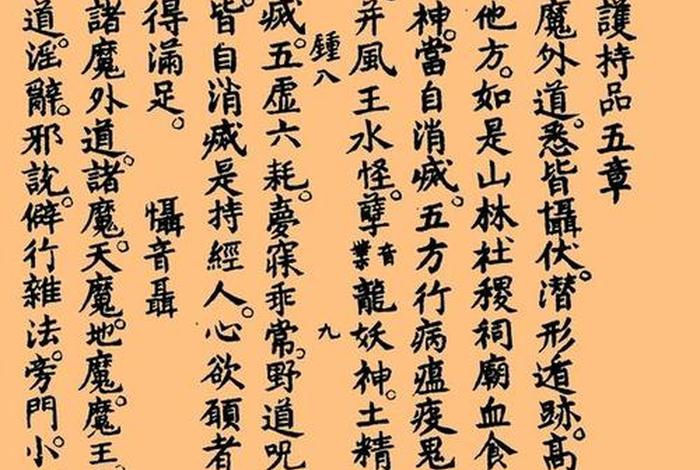 護持品五章
魔外道。悉皆懾伏。潛形遁跡。高
他方。如是山林社稷祠廟血食
神。當自消滅。五方行病瘟疫鬼
并風王水怪。孽音業龍妖神。土精
鍾八
九
滅。五虛六耗。夢寐乖常。野道呪
皆自消滅是持經人。心欲願者
得滿足。 懾音聶
諸魔外道。諸魔。天魔。地魔。魔王。
道。淫辭。邪說。僻行雜法。旁門小。